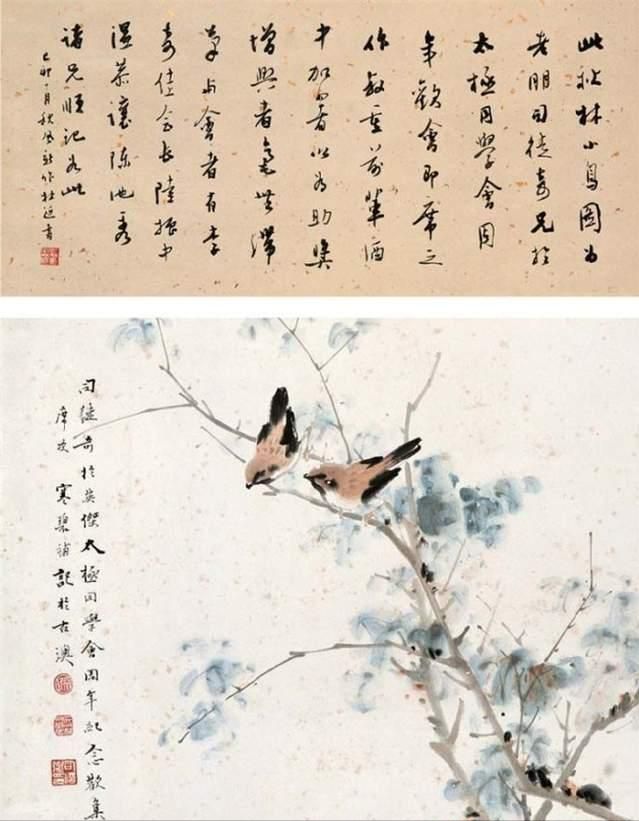 此秋林小鳥圖為
老朋司徒奇兄於
太極同學會周
年歡會即席之
作前輩酒
中加以為助
增興者無滯
會者有李
奇佳會長陸振中
溫恭讓陳池秀
諸兄順記如此
己卯月秋風作
司徒奇於英傑太極同學會周年紀念歡集
席次寒碧補記於古澳